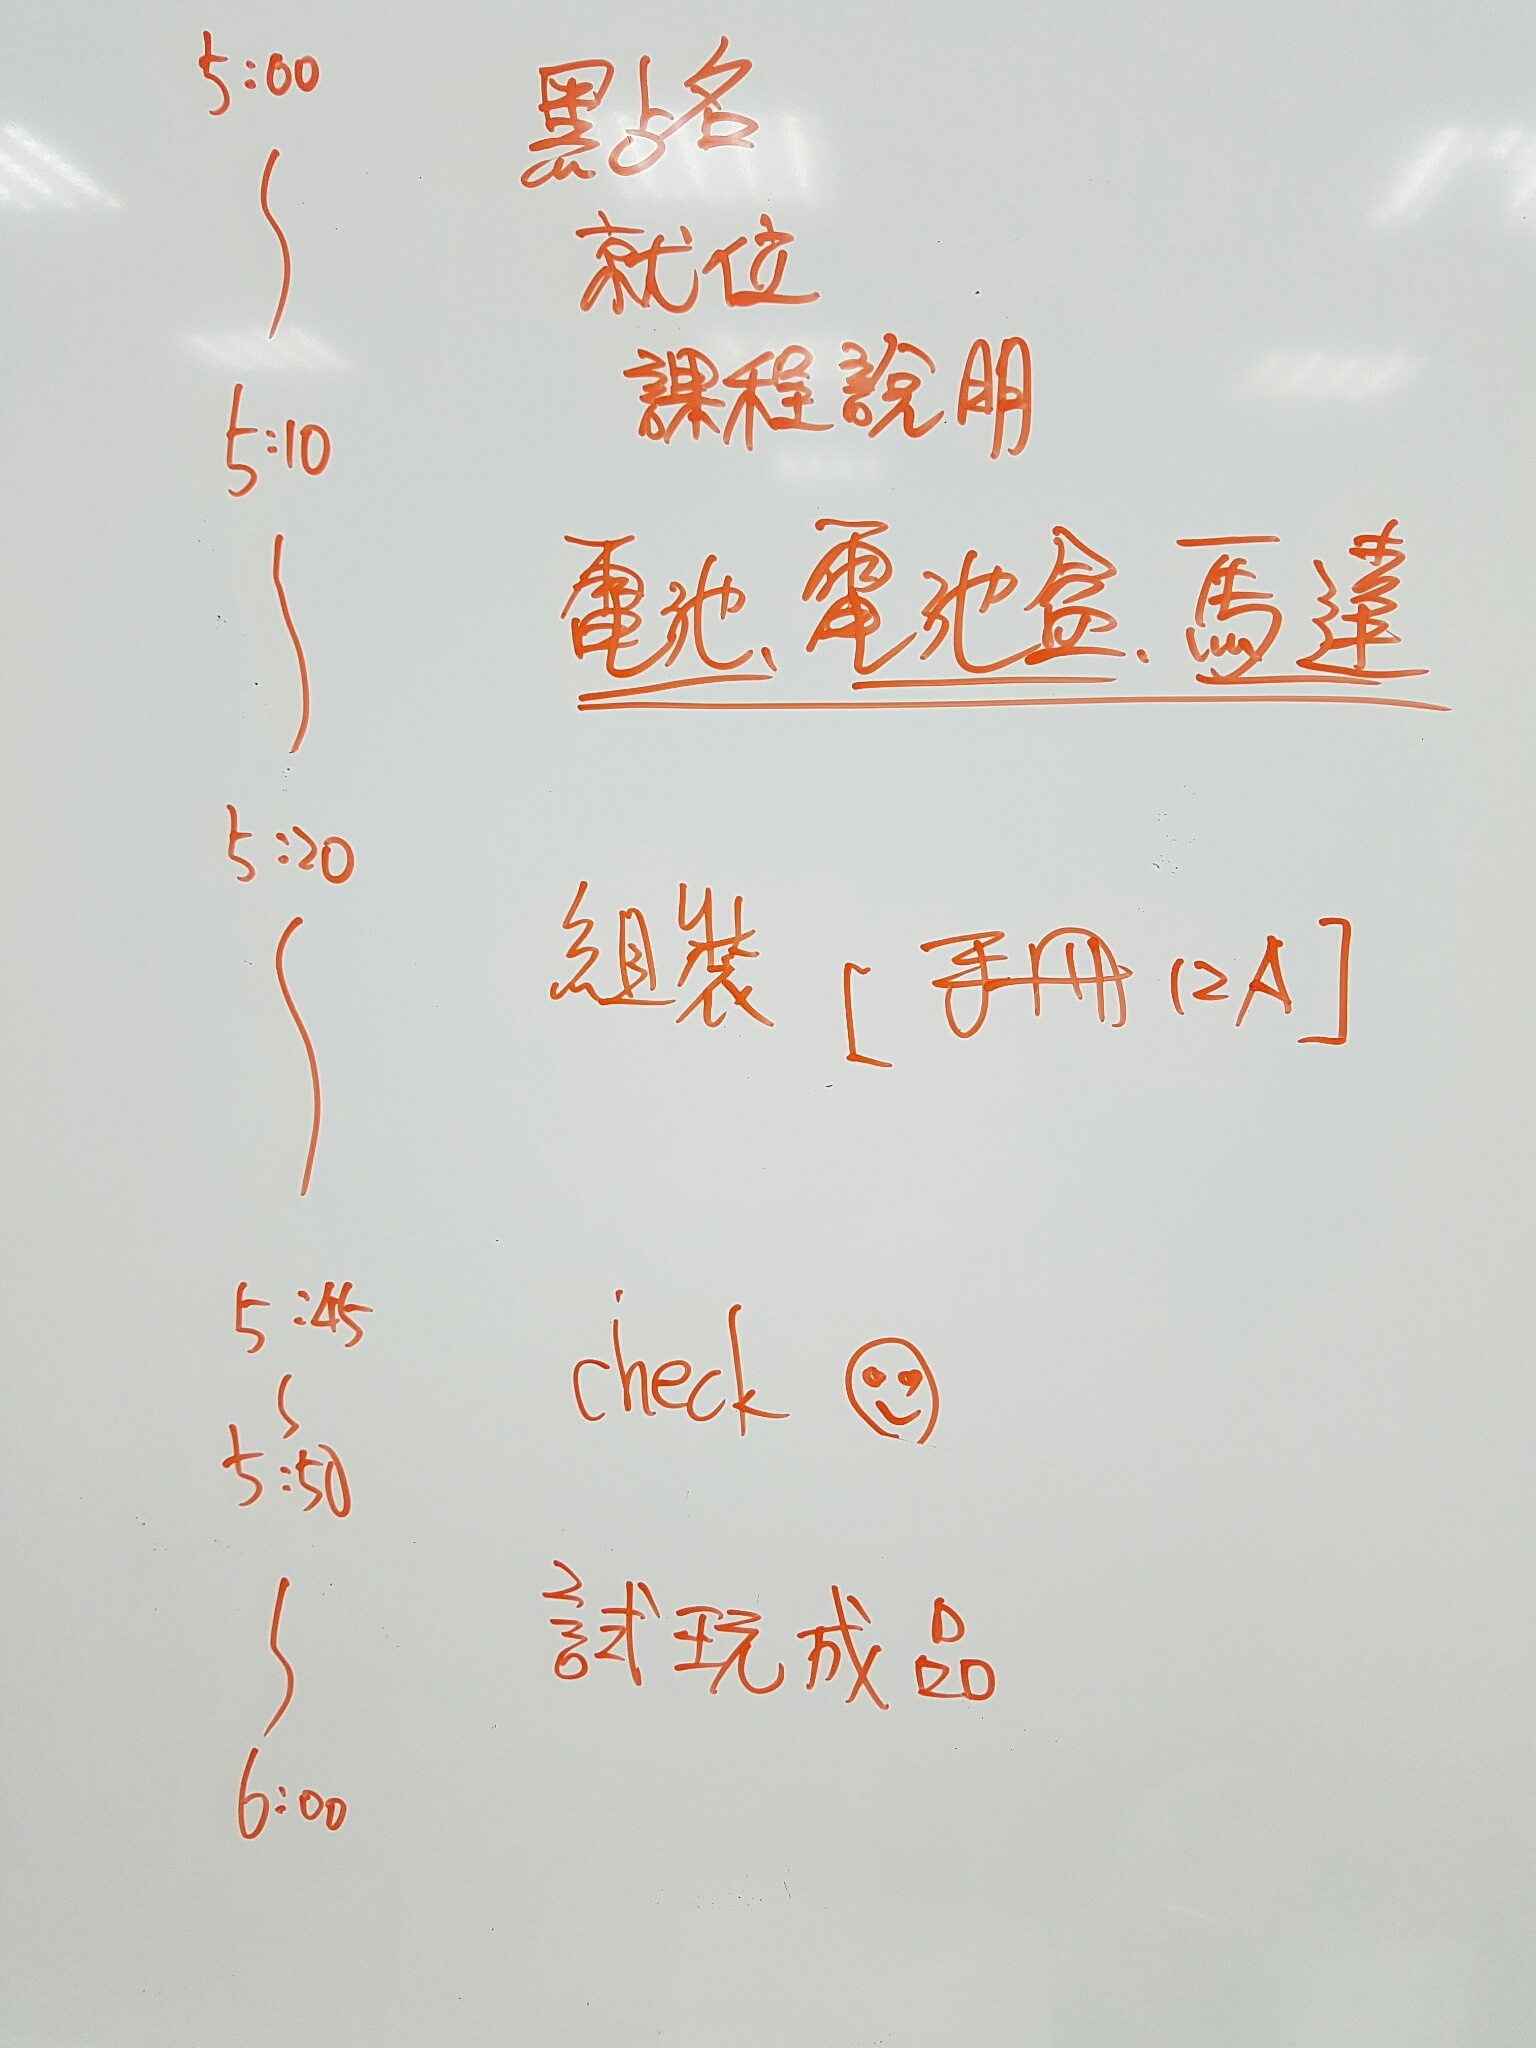 5:00
點名
就位
課程說明
5:10
電池、電池盒、馬達
5:20
組裝 [手冊12A]
5:45
check
5:50
試玩成品
6:00